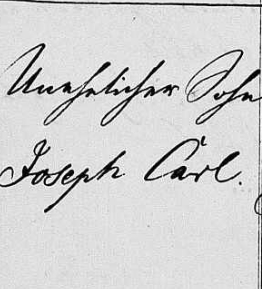 Unehelicher Sohn
Joseph Carl.